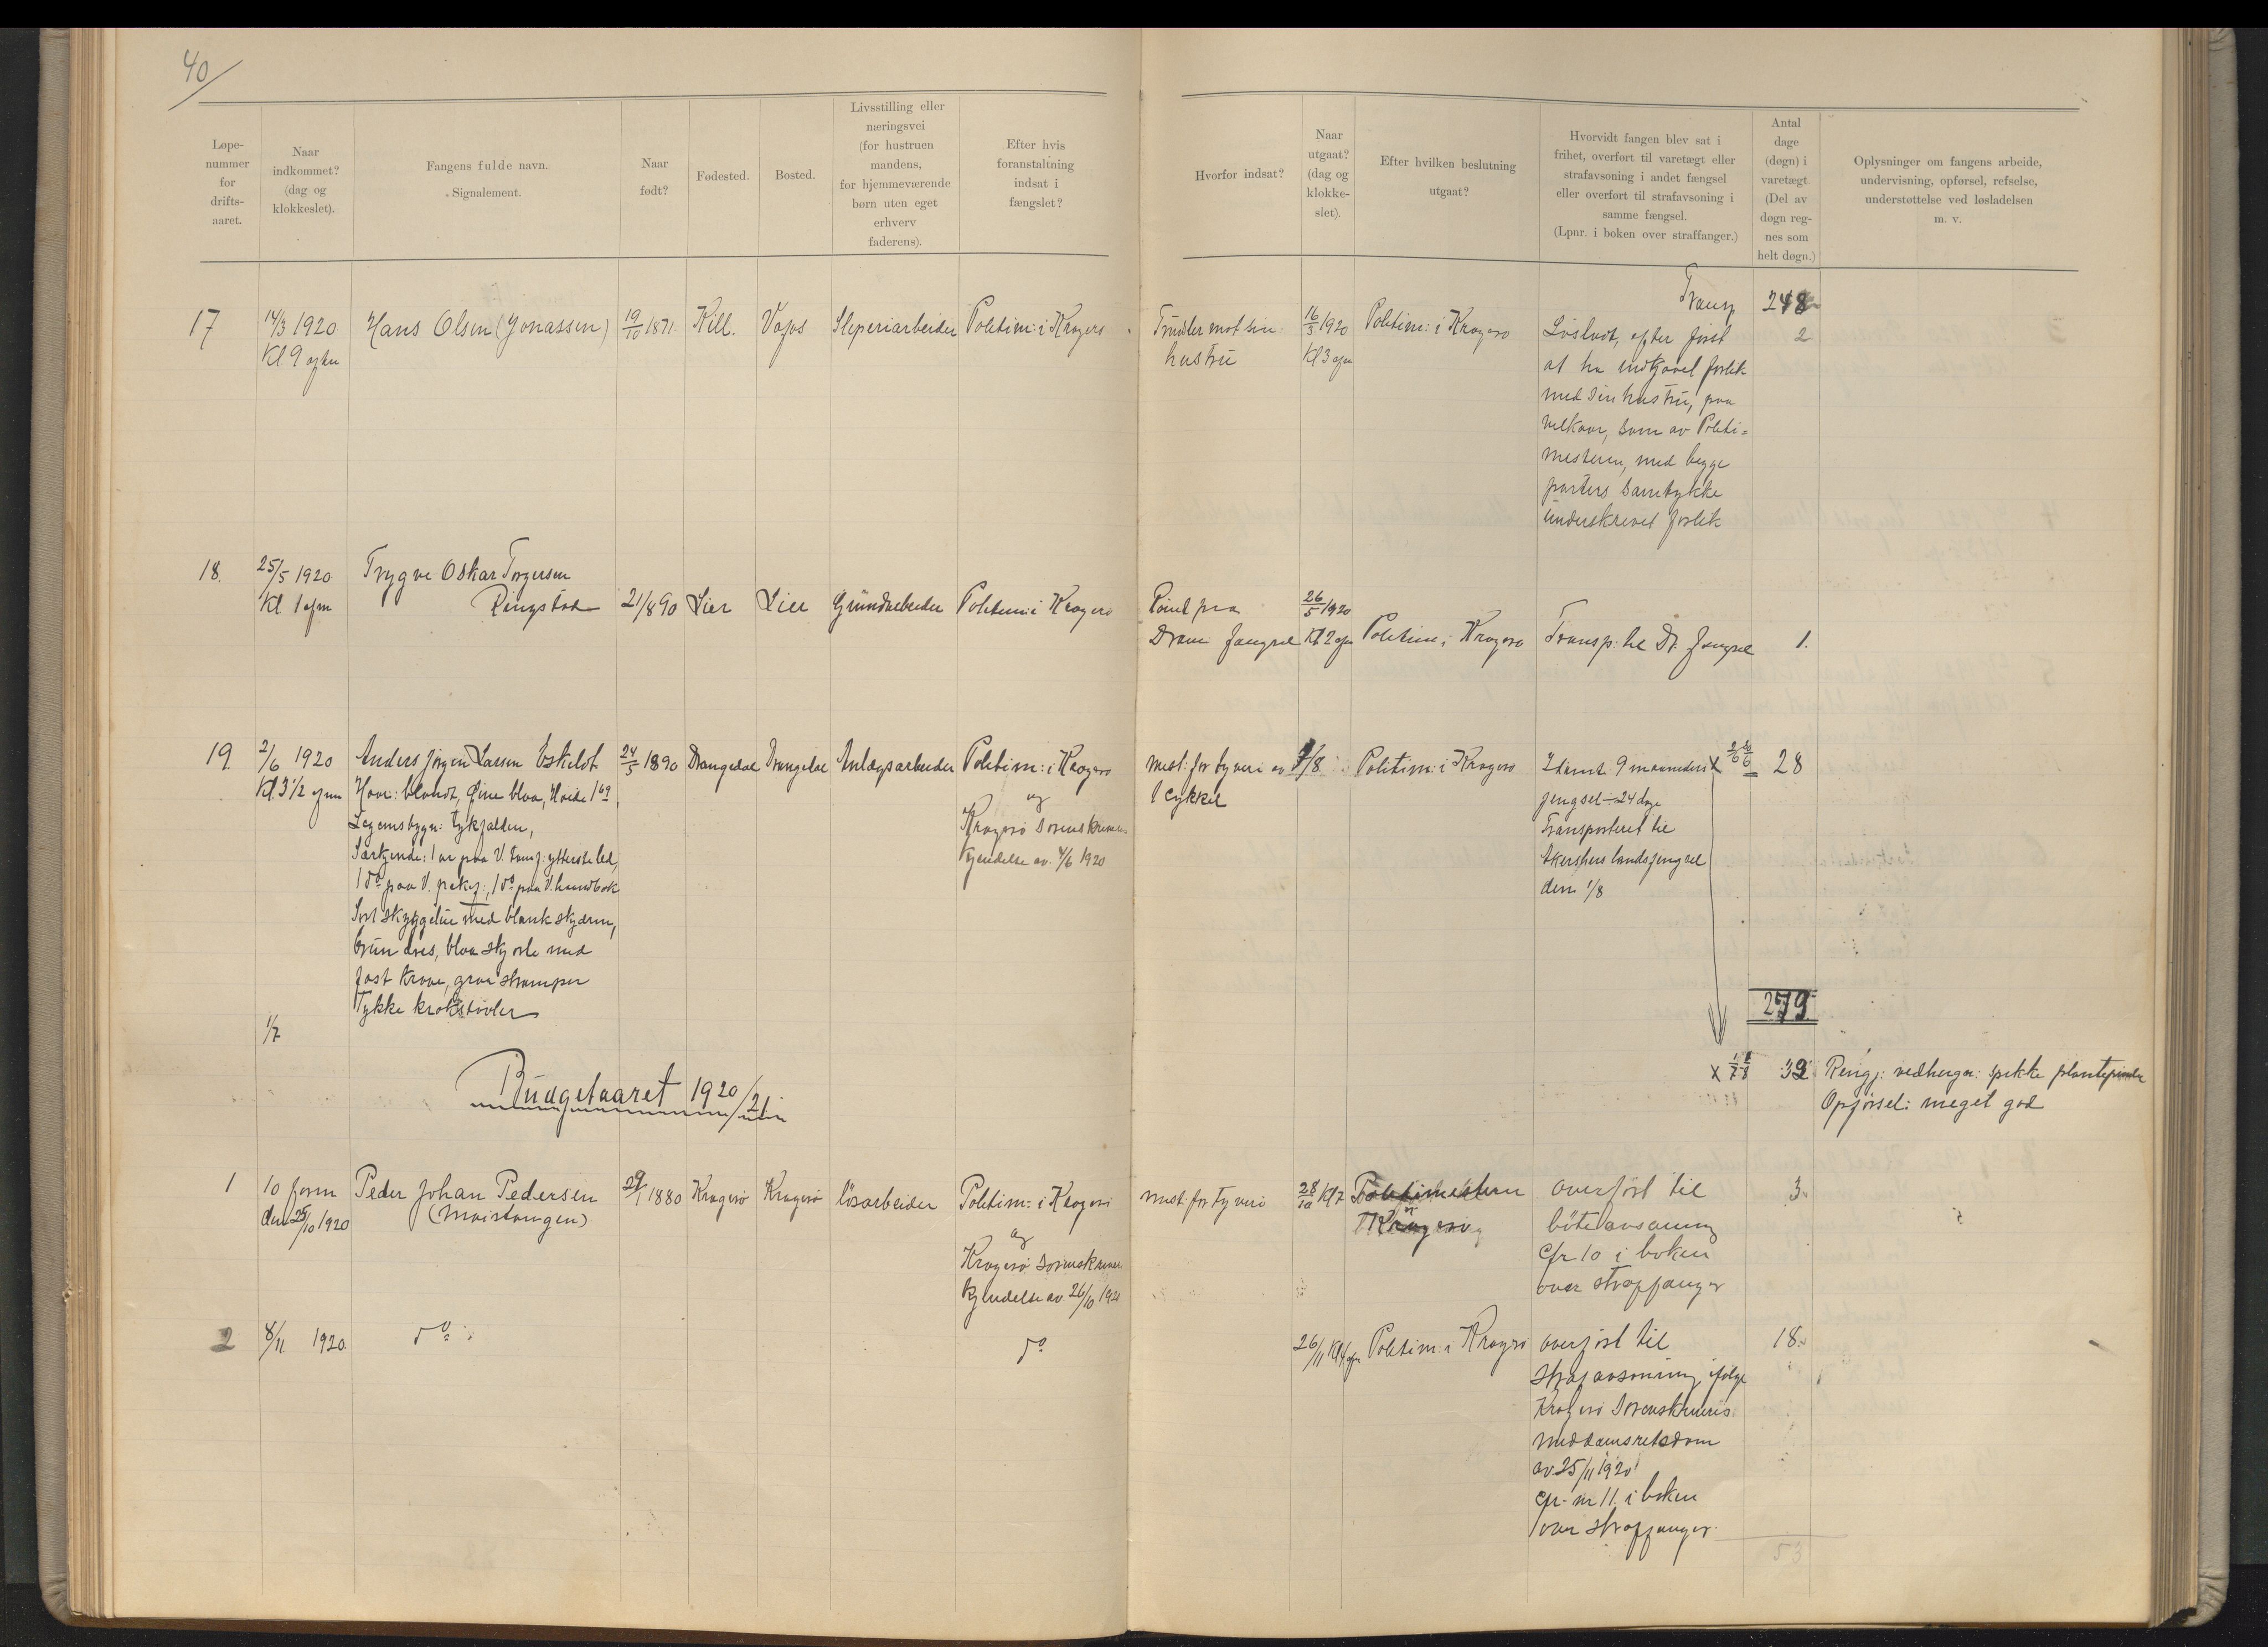 40
Løpe-
nummer
for
drifts-
aaret.
Naar
indkommet?
(dag og
klokkeslet).
Fangens fulde navn.
Signalement.
Naar
født?
Fødested.
Bosted.
Livsstilling eller
næringsvei
(for hustruen
mandens,
for hjemmeværende
børn uten eget
erhverv
faderens).
Efter hvis
foranstaltning
indsat i
fængslet?
Hvorfor indsat?
Naar
utgaat?
(dag og
klokke-
slet).
Efter hvilken beslutning
utgaat?
Hvorvidt fangen blev sat i
frihet, overført til varetægt eller
strafavsoning i andet fængsel
eller overført til strafavsoning i
samme fængsel.
(Lpnr. i boken over straffanger.)
Antal
dage
(døgn) i
varetægt.
(Del av
døgn reg-
nes som
helt døgn.)
Oplysninger om fangens arbeide,
undervisning, opførsel, refselse,
understøttelse ved løsladelsen
m. v.
Transp 248
17
14/3 1920
Kl. 9 efm
Hans Olsen (Jonassen)
19/10 1871
Kill.
Vafos
Sleperiarbeider
Politim: i Kragerø
Trusler mot sin
hustru
16/3 1920
Kl 3 efm
Politim: i Kragerø
Løsladt, efter først
at ha indgaaet forlik
med sin hustru, paa
velkaar, som av Politi=
mesteren, med begge
parters samtykke
underskrevet forlik
2
18.
25/5 1920
Kl. 1 efm
Trygve Oskar Torgersen
Ringstad
21/8 90
Lier
Lier
Grundarbeider
Politim: i Kragerø
Rømt fra
Dram. fængsel
26/5 1920
Kl 2 efm
Politim: i Kragerø
Transp. til Dr. fængsel
1.
19.
2/6 1920
Kl. 3 1/2 efm
Anders Jørgen Larsen Eskeldt
Haar: blondt, Øine blaa, Høide 1 69,
Legemsbygn: tykfalden,
Særkjende: 1 ar paa V. tomf: ytterste led,
1 do paa V. pekef:, 1 do paa V. handbak
Sort skyggelue med blank skjærm,
brun dres, blaa skjorte med
fast krave, graa strømper
Tykke krokstøvler
24/5 1890
Drangedal
Drangedal
Anlægsarbeider
Politim: i Kragerø
og
Kragerø Sorenskrivers
Kjendelse av 4/6 1920
Mist. for tyveri av
1 cykkel
1/8
Politim: i Kragerø
Idømt 9 maaneders
fengsel ÷ 24 dage
Transporteret til
Akershus landsfengsel
den 1/8
x
28
279
1/7
x 1/7 1/8 32
Rengj: vedhugn: spikke
Opførsel: meget god
Budgetaaret 1920/21
1
10 form
den 25/10 1920
Peder Johan Pedersen
(Maistangen)
29/1 1880
Kragerø
Kragerø
løsarbeider
Politim: i Kragerø
og
Kragerø Sorenskrivers
Kjendelse av 26/10 1920
Mist: for tyveri
28/10 Kl 7
Politimesteren
i Kragerø
overført til
bøteavsoning
Cfr 10 i boken
over straffanger
3
2
8/11 1920
do
do
26/11 Kl 4 efm
Politim: i Kragerø
overført til
strafavsoning ifølge
Kragerø Sorenskrivers
meddomsretsdom
av 25/11 1920
Cfr. nr 11 i boken
over straffanger.
18
53